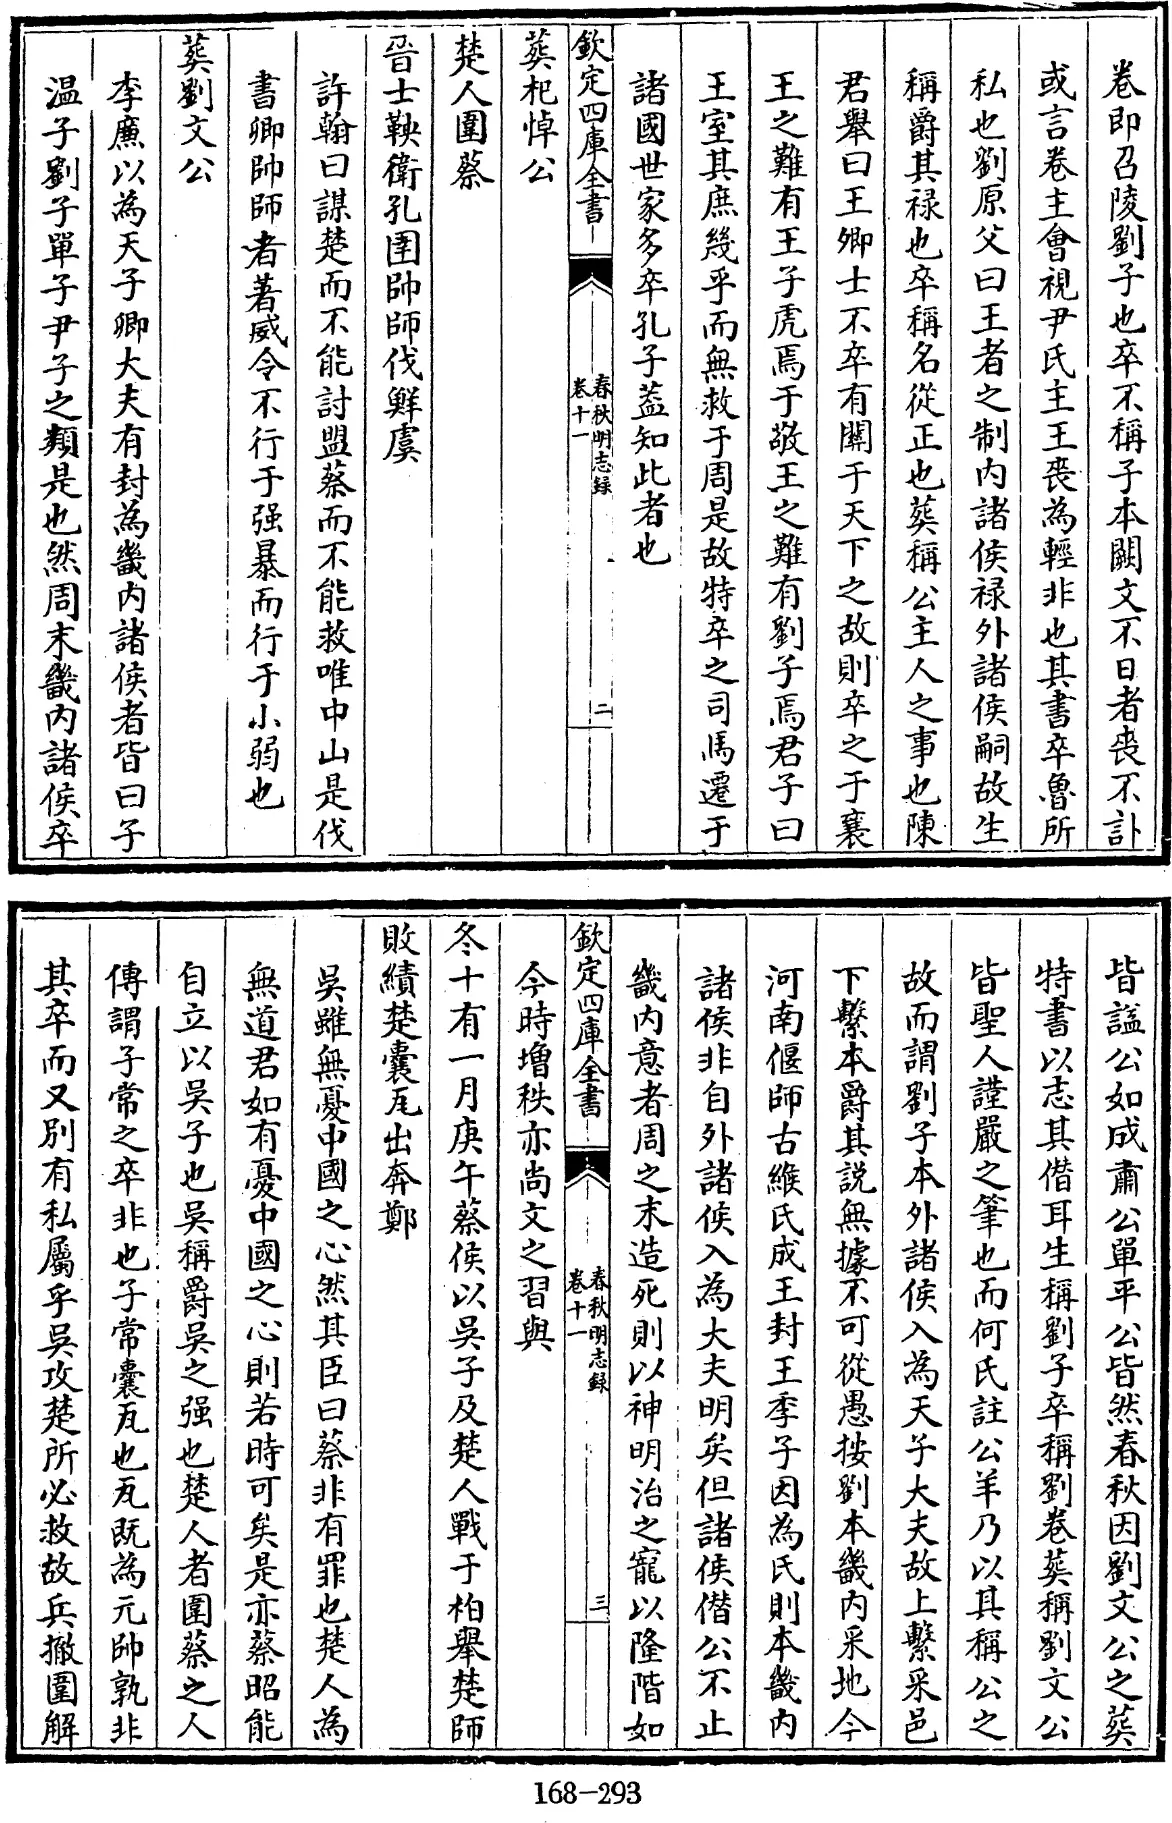 卷即召陵劉子也卒不稱子本闕文不日者喪不訃
或言卷主會視尹氏主王喪為輕非也其書卒魯所
私也劉原父曰王者之制内諸侯禄外諸侯嗣故生
稱爵其禄也卒稱名從正也葬稱公主人之事也陳
君舉曰王卿士不卒有闗于天下之故則卒之于襄
王之難有王子虎焉于敬王之難有劉子焉君子曰
王室其庶幾乎而無救于周是故特卒之司馬遷于
諸國世家多卒孔子葢知此者也
欽定四庫全書
春秋明志録
卷十一
二
葬杞悼公
楚人圍蔡
晉士鞅衛孔圉帥師伐鮮虞
許翰曰謀楚而不能討盟蔡而不能救唯中山是伐
書卿帥師者著威令不行于强暴而行于小弱也
葬劉文公
李廉以為天子卿大夫有封為畿内諸侯者皆曰子
温子劉子單子尹子之類是也然周末畿内諸侯卒
皆諡公如成肅公單平公皆然春秋因劉文公之葬
特書以志其僭耳生稱劉子卒稱劉卷葬稱劉文公
皆聖人謹嚴之筆也而何氏註公羊乃以其稱公之
故而謂劉子本外諸侯入為天子大夫故上繫采邑
下繫本爵其説無據不可從愚按劉本畿内采地今
河南偃師古緱氏成王封王季子因為氏則本畿内
諸侯非自外諸侯入為大夫明矣但諸侯僭公不止
畿内意者周之末造死則以神明治之寵以隆階如
欽定四庫全書
春秋明志録
卷十一
三
今時增秩亦尚文之習與
冬十有一月庚午蔡侯以吳子及楚人戰于柏舉楚師
敗績楚囊瓦出奔鄭
吳雖無憂中國之心然其臣曰蔡非有罪也楚人為
無道君如有憂中國之心則若時可矣是亦蔡昭能
自立以吳子也吳稱爵吳之强也楚人者圍蔡之人
傳謂子常之卒非也子常囊瓦也瓦既為元帥孰非
其卒而又别有私屬乎吳攻楚所必救故兵撤圍解
168-293